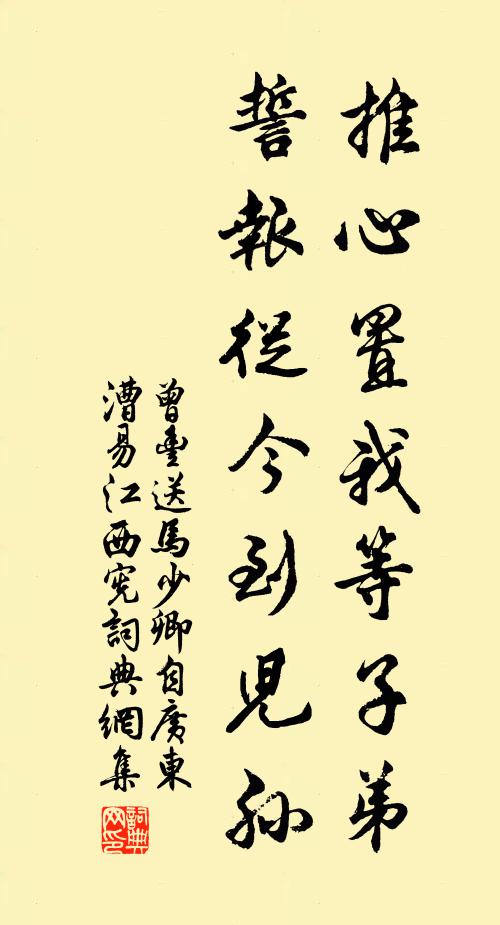 推心置我等子弟
誓報從今到児孫
曾豊送馬少卿自廣東
漕易江西憲詞典網集
詞典網印